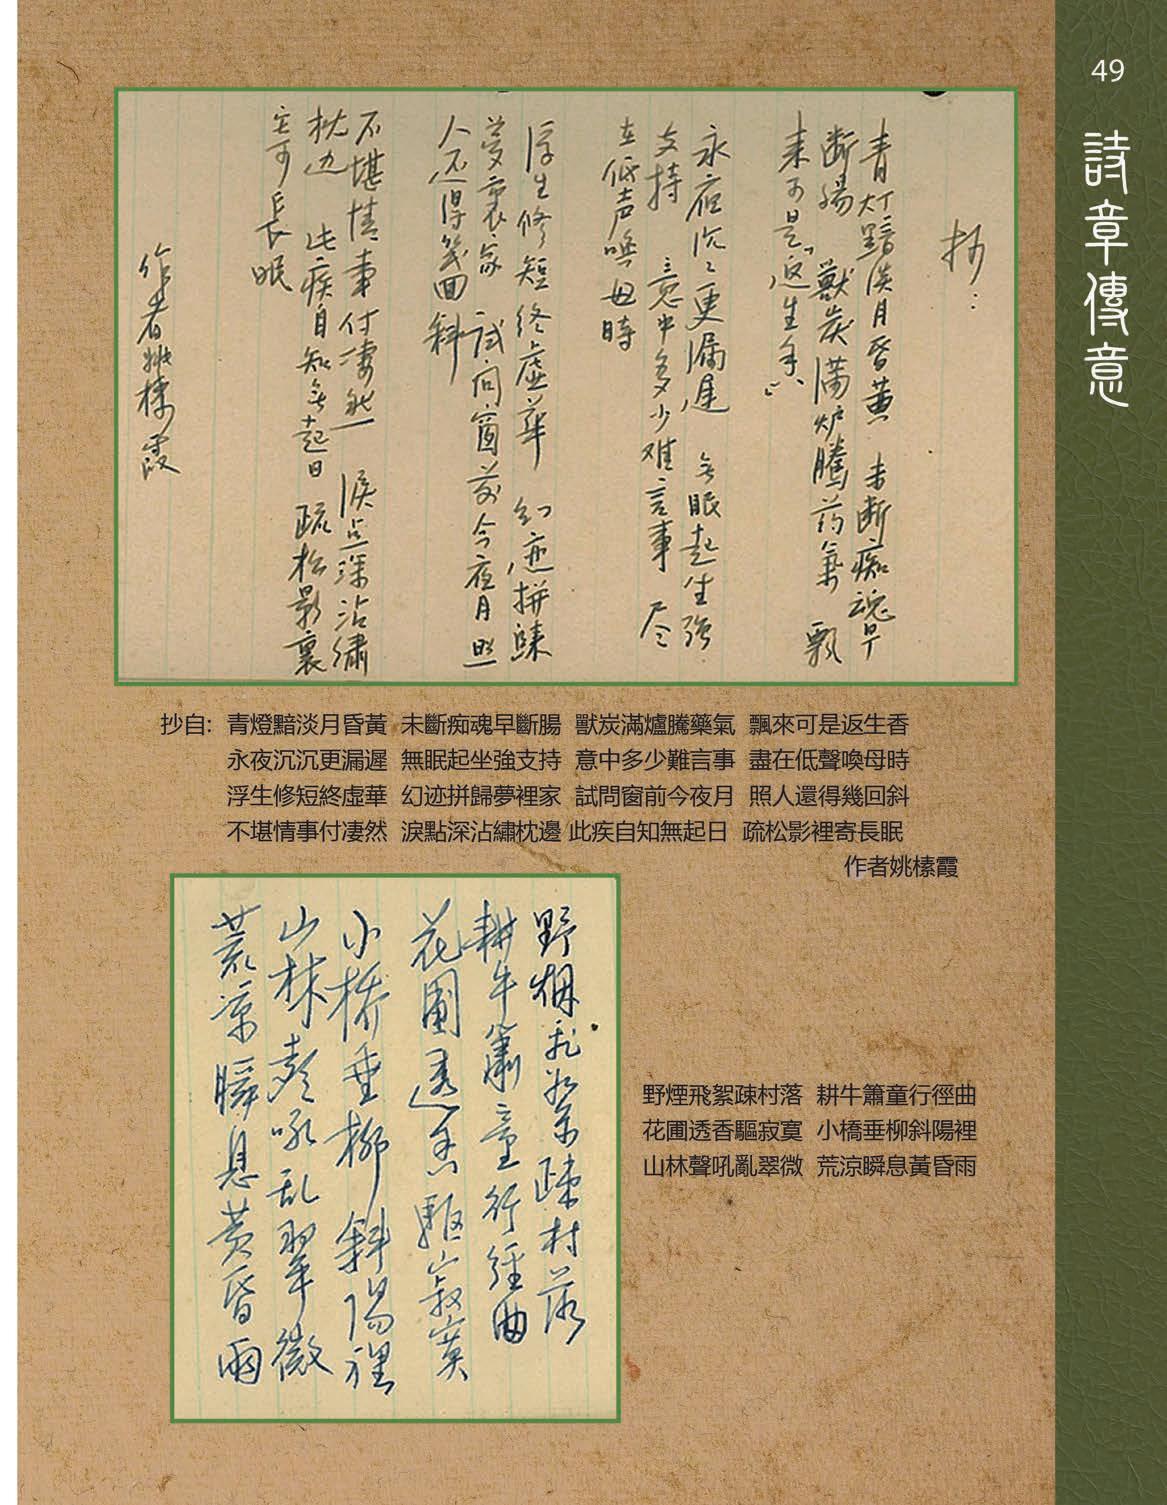 49
詩章傳意
抄：
青灯黯淡月昏黄 未断痴魂早
断腸 獸炭滿炉騰药氣 飄
来可是「返生香」
永夜沉沉更漏遲 無眠起坐强
支持 意中多少难言事 尽
在低声喚母時
浮生修短終虛華 幻迹拼歸
夢裏家 試問窗前今夜月 照
人还得幾回斜
不堪情事付凄然 淚点深沾繡
枕边 此疾自知無起日 疏松影裏
寄長眠
作者姚榛霞
抄自: 青燈黯淡月昏黃 未斷痴魂早斷腸 獸炭滿爐騰藥氣 飄來可是返生香
永夜沉沉更漏遲 無眠起坐強支持 意中多少難言事 盡在低聲喚母時
浮生修短終虛華 幻迹拼歸夢裡家 試問窗前今夜月 照人還得幾回斜
不堪情事付凄然 淚點深沾繡枕邊 此疾自知無起日 疏松影裡寄長眠
作者姚榛霞
野烟飛絮疎村落
耕牛簫童行徑曲
花圃透香驅寂寞
小橋垂柳斜陽裡
山林聲吼乱翠微
荒凉瞬息黄昏雨
野煙飛絮疎村落 耕牛簫童行徑曲
花圃透香驅寂寞 小橋垂柳斜陽裡
山林聲吼亂翠微 荒涼瞬息黃昏雨